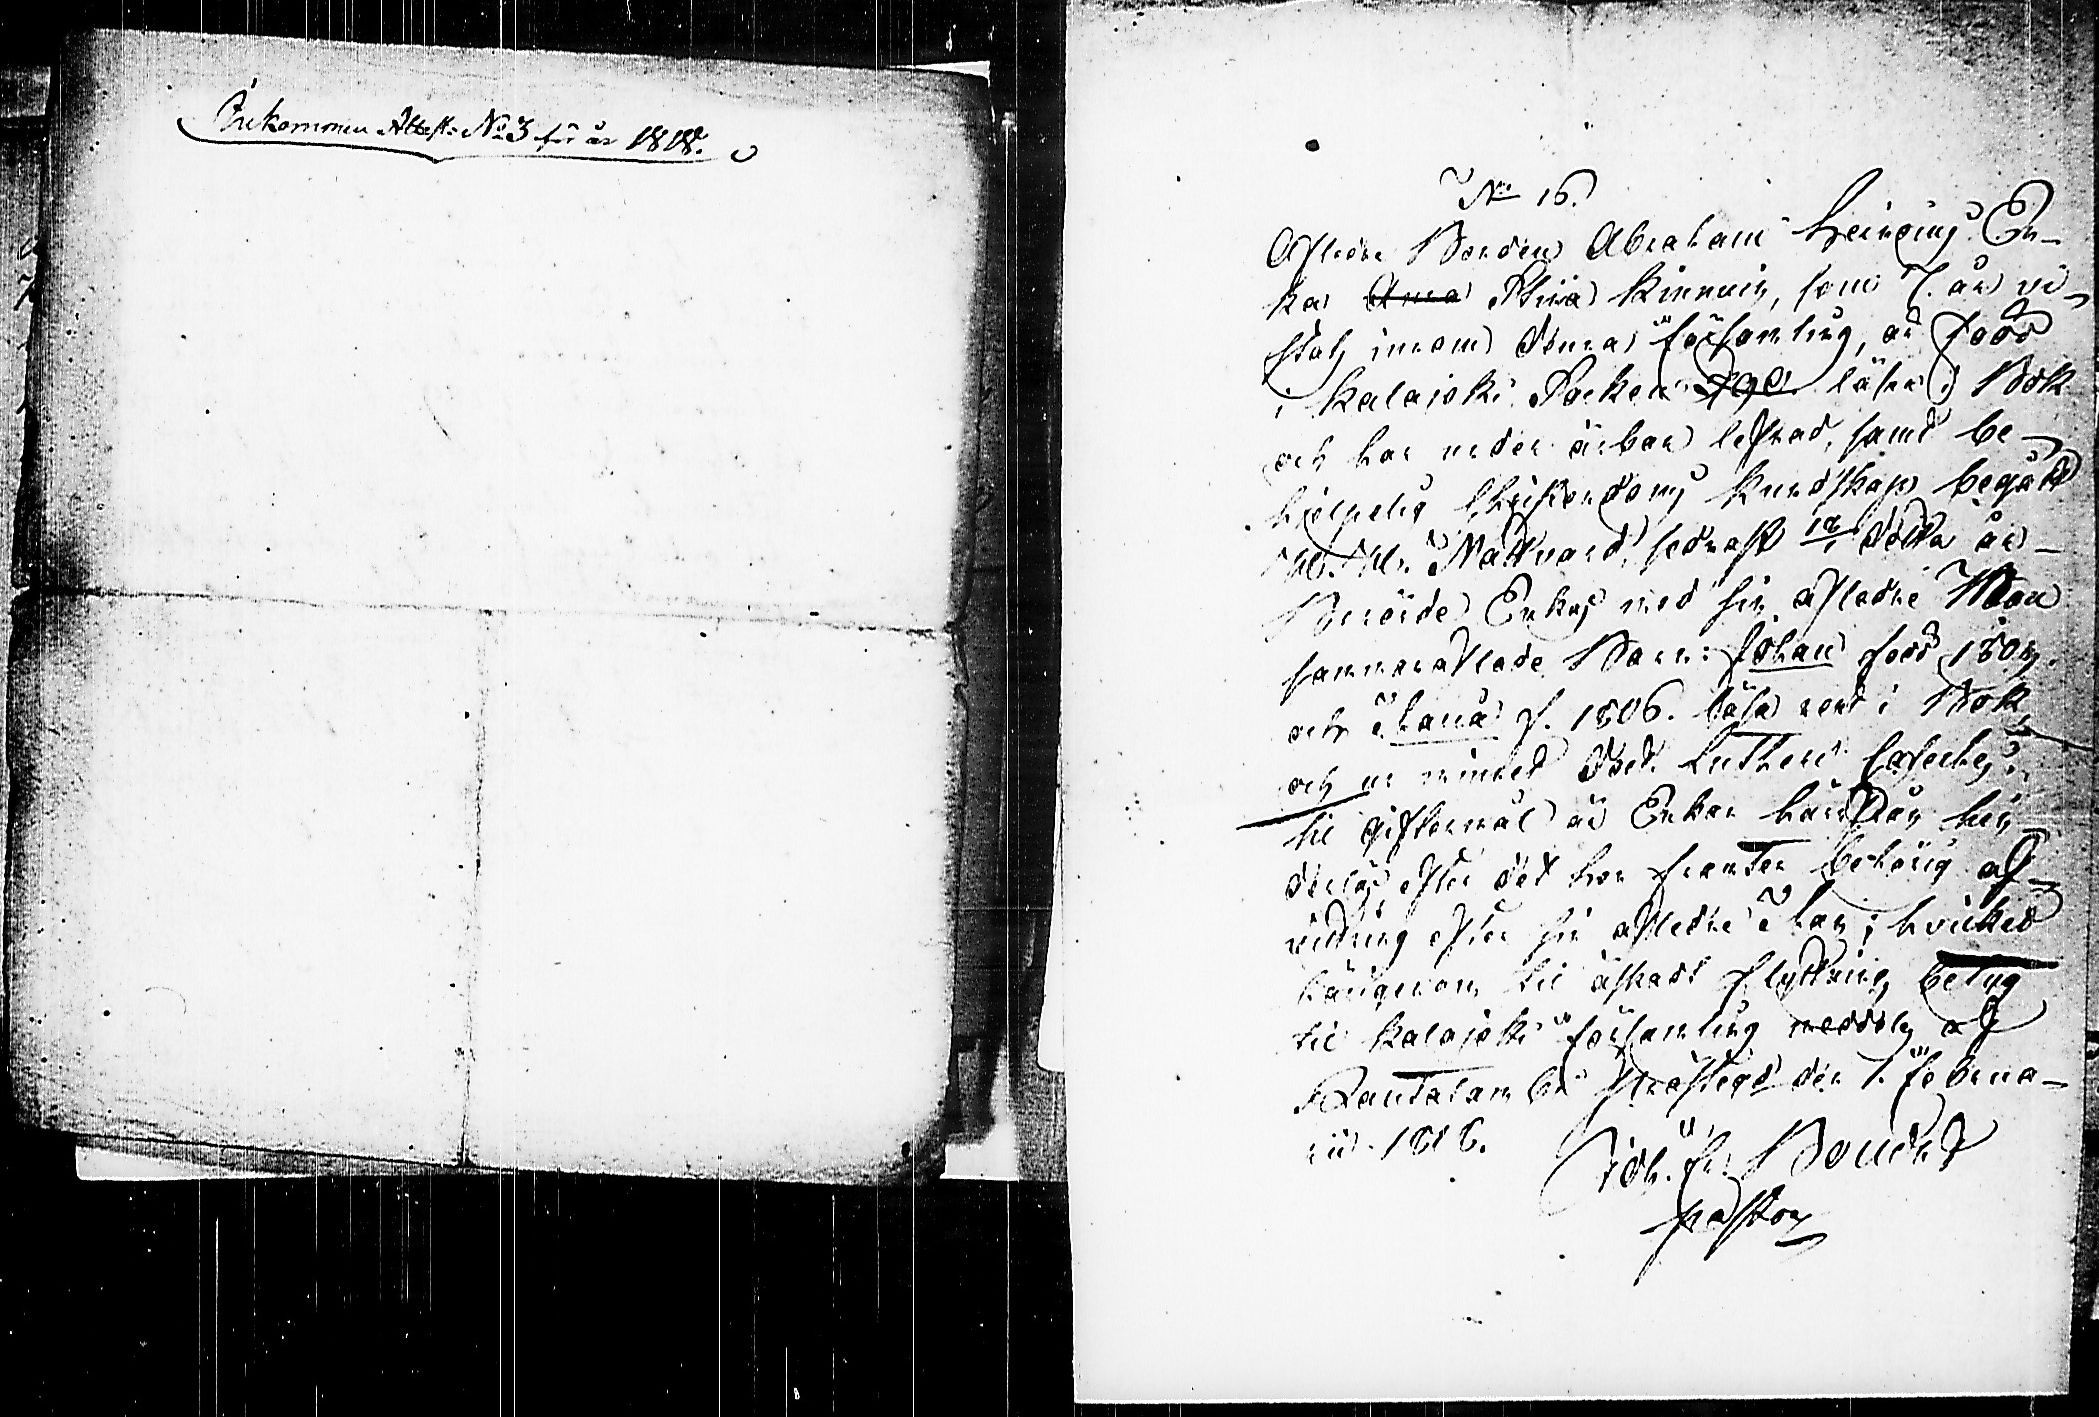 Inkommen Attest N:o 3 för år 1818.
No 16.
Afledne Bonden Abraham Heineins En-
ka Anna Stina Kinnuin, som 7. år vi-
stats innom denna församling, är född
i Kalajoki Socken 790 läser i Bok
och har under ärbar lefnad, samt be-
hjelpelig Christendoms kundskap begådt
H. H. Nattvard, sednast detta år –
Berörde Enkas med sin afledne Man
sammanaflade Barn: Johan född 180
och Hana f. 1806. läsa rent i Bok
och ur minnet Doct. Lutheri Cateches.
til giftermål är Enkan härifrån hin-
derlös, efter det hon framter behörig af-
vittring efter sin afledne Man; hvilket
härigenom til äskadt flyttnings betyg
til Kalajoki församling meddelas af
Rautalambi Prestegård den 1. Februa-
rii 1818.
Joh. Fr. Boucht
pastor